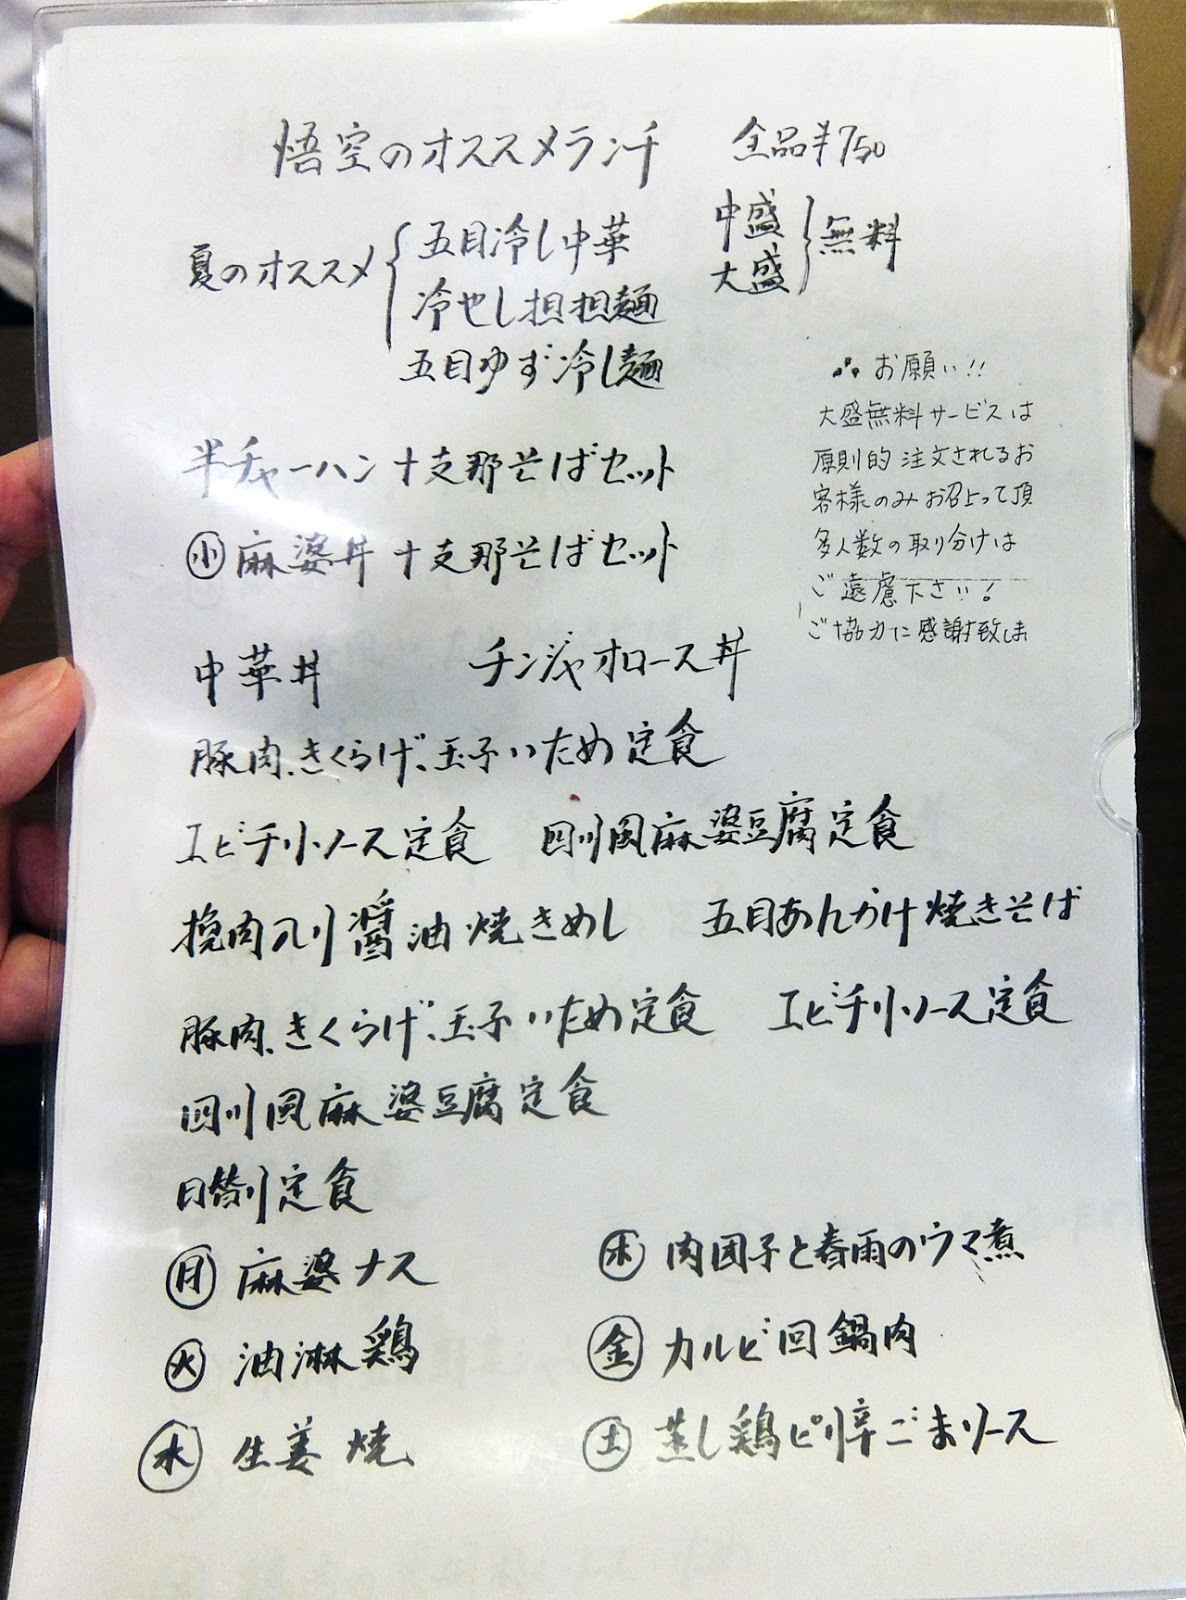 悟空のオススメランチ 全品¥750
夏のオススメ 五目冷し中華 中盛 大盛 無料
冷やし担担麺
五目ゆず冷し麺
お願い!!
大盛無料サービスは
原則的注文されるお
客様のみお召上って頂
多人数の取り分けは
ご遠慮下さい!
ご協力に感謝致しま
半チャーハン+支那そばセット
小 麻婆丼+支那そばセット
中華丼 チンジャオロース丼
豚肉、きくらげ、玉子いため定食
エビチリソース定食 四川風麻婆豆腐定食
挽肉入り醤油焼きめし 五目あんかけ焼きそば
豚肉、きくらげ、玉子いため定食 エビチリソース定食
四川風麻婆豆腐定食
日替り定食
月 麻婆ナス 木 肉団子と春雨のウマ煮
火 油淋鶏 金 カルビ回鍋肉
水 生姜焼 土 蒸し鶏ピリ辛ごまソース